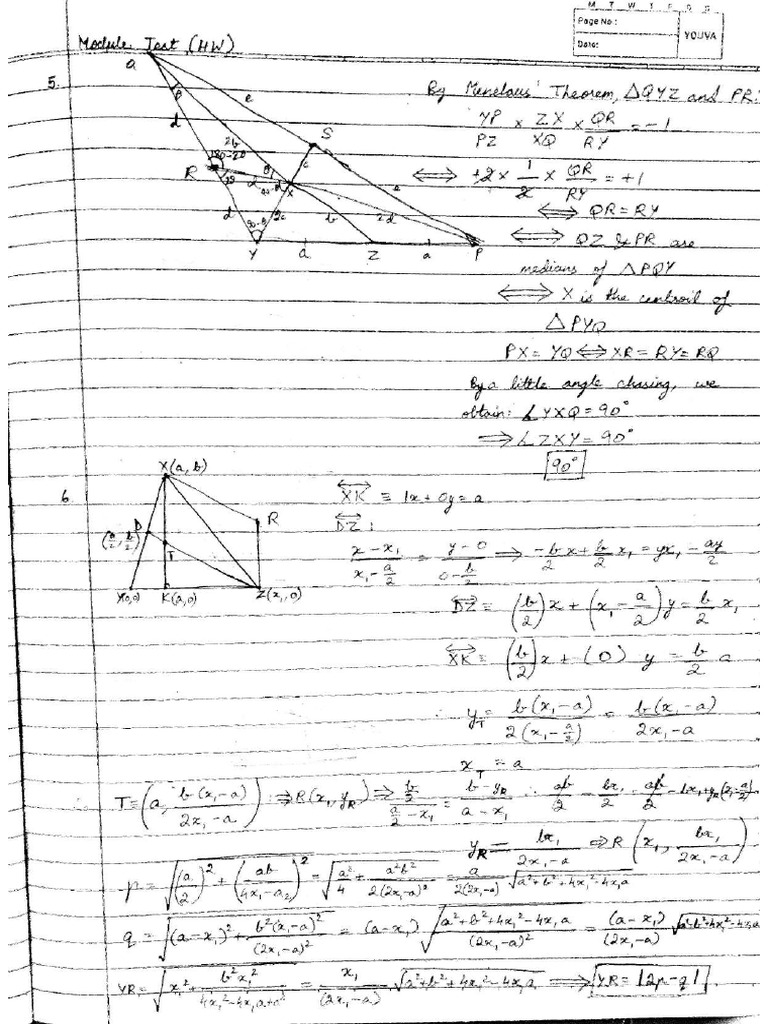 M T W T F S S
Page No.:
Date:
YOUVA
Module Test (HW)
5.
By Menelaus' Theorem, △QYZ and PR:
YP/PZ × ZX/XQ × QR/RY = -1
⟺ +2 × 1/2 × QR/RY = +1
⟺ QR = RY
⟺ QZ & PR are
medians of △PQY
⟺ X is the centroil of
△PYQ
PX = YQ ⟺ XR = RY = RQ
By a little angle chasing, we
obtain: ∠YXQ = 90°
⟹ ∠ZXY = 90°
90°
Q
S
R
X
Y
Z
P
a
a
b
2b
c
2c
d
d
d
2d
e
e
θ
θ
180-2θ
2θ
90-θ
90-θ
6.
X(a, b)
D
(a/2, b/2)
T
R
Y(0,0)
K(a,0)
Z(x₁,0)
XK ≡ 1x + 0y = a
DZ:
(x - x₁)/(x₁ - a/2) = (y - 0)/(0 - b/2) ⟹ -b/2 x + b/2 x₁ = yx₁ - ay/2
DZ ≡ (b/2)x + (x₁ - a/2)y = b/2 x₁
XK ≡ (b/2)x + (0) y = b/2 a
y_T = b(x₁ - a)/2(x₁ - a/2) = b(x₁ - a)/(2x₁ - a)
x_T = a
T ≡ (a, b(x₁ - a)/(2x₁ - a)) ⟹ R(x₁, y_R) ⟹ (b/2)/(a/2 - x₁) = (b - y_R)/(a - x₁) ∴ ab/2 - bx₁/2 = ab/2 - bx₁ + y_R(x₁ - a/2)
y_R = bx₁/(2x₁ - a) ⟹ R(x₁, bx₁/(2x₁ - a))
p = √((a/2)² + (ab/(4x₁ - a2))²) = √(a²/4 + a²b²/2(2x₁-a)²) = a/2(2x₁-a) √(a² + b² + 4x₁² - 4x₁a)
q = √((a - x₁)² + b²(x₁ - a)²/(2x₁ - a)²) = (a - x₁) √((a² + b² + 4x₁² - 4x₁a)/(2x₁ - a)²) = (a - x₁)/(2x₁ - a) √(a² + b² + 4x₁² - 4x₁a)
YR = √(x₁² + b²x₁²/(4x₁² - 4x₁a + a²)) = x₁/(2x₁ - a) √(a² + b² + 4x₁² - 4x₁a) ⟹ YR = |2p - q|.